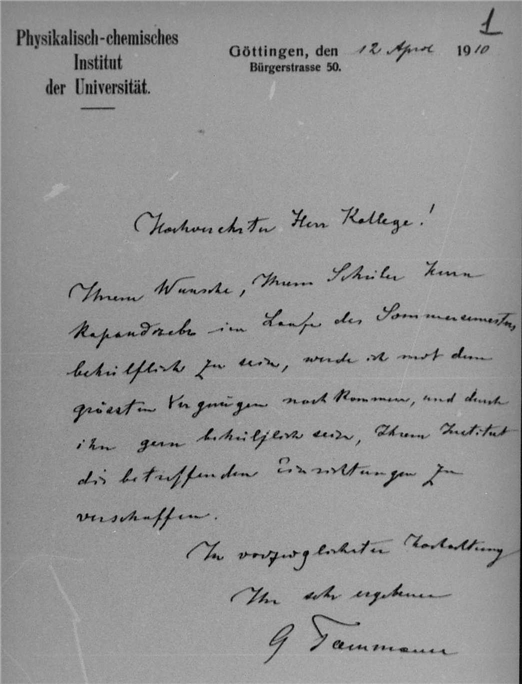 1
Physikalisch-chemisches
Institut
der Universität.
Göttingen, den 12 April 1910
Bürgerstrasse 50.
Hochverehrter Herr Kollege!
Ihrem Wunsche, Ihrem Schüler Herrn
im Laufe des Sommersemesters
behülflich zu sein, werde ich mit dem
grössten Vergnügen nachkommen, und durch
ihn gern behülflich sein, Ihrem Institut
die betreffenden Einrichtungen zu
verschaffen.
In vorzüglichster Hochachtung
Ihr sehr ergebener
G Tammann